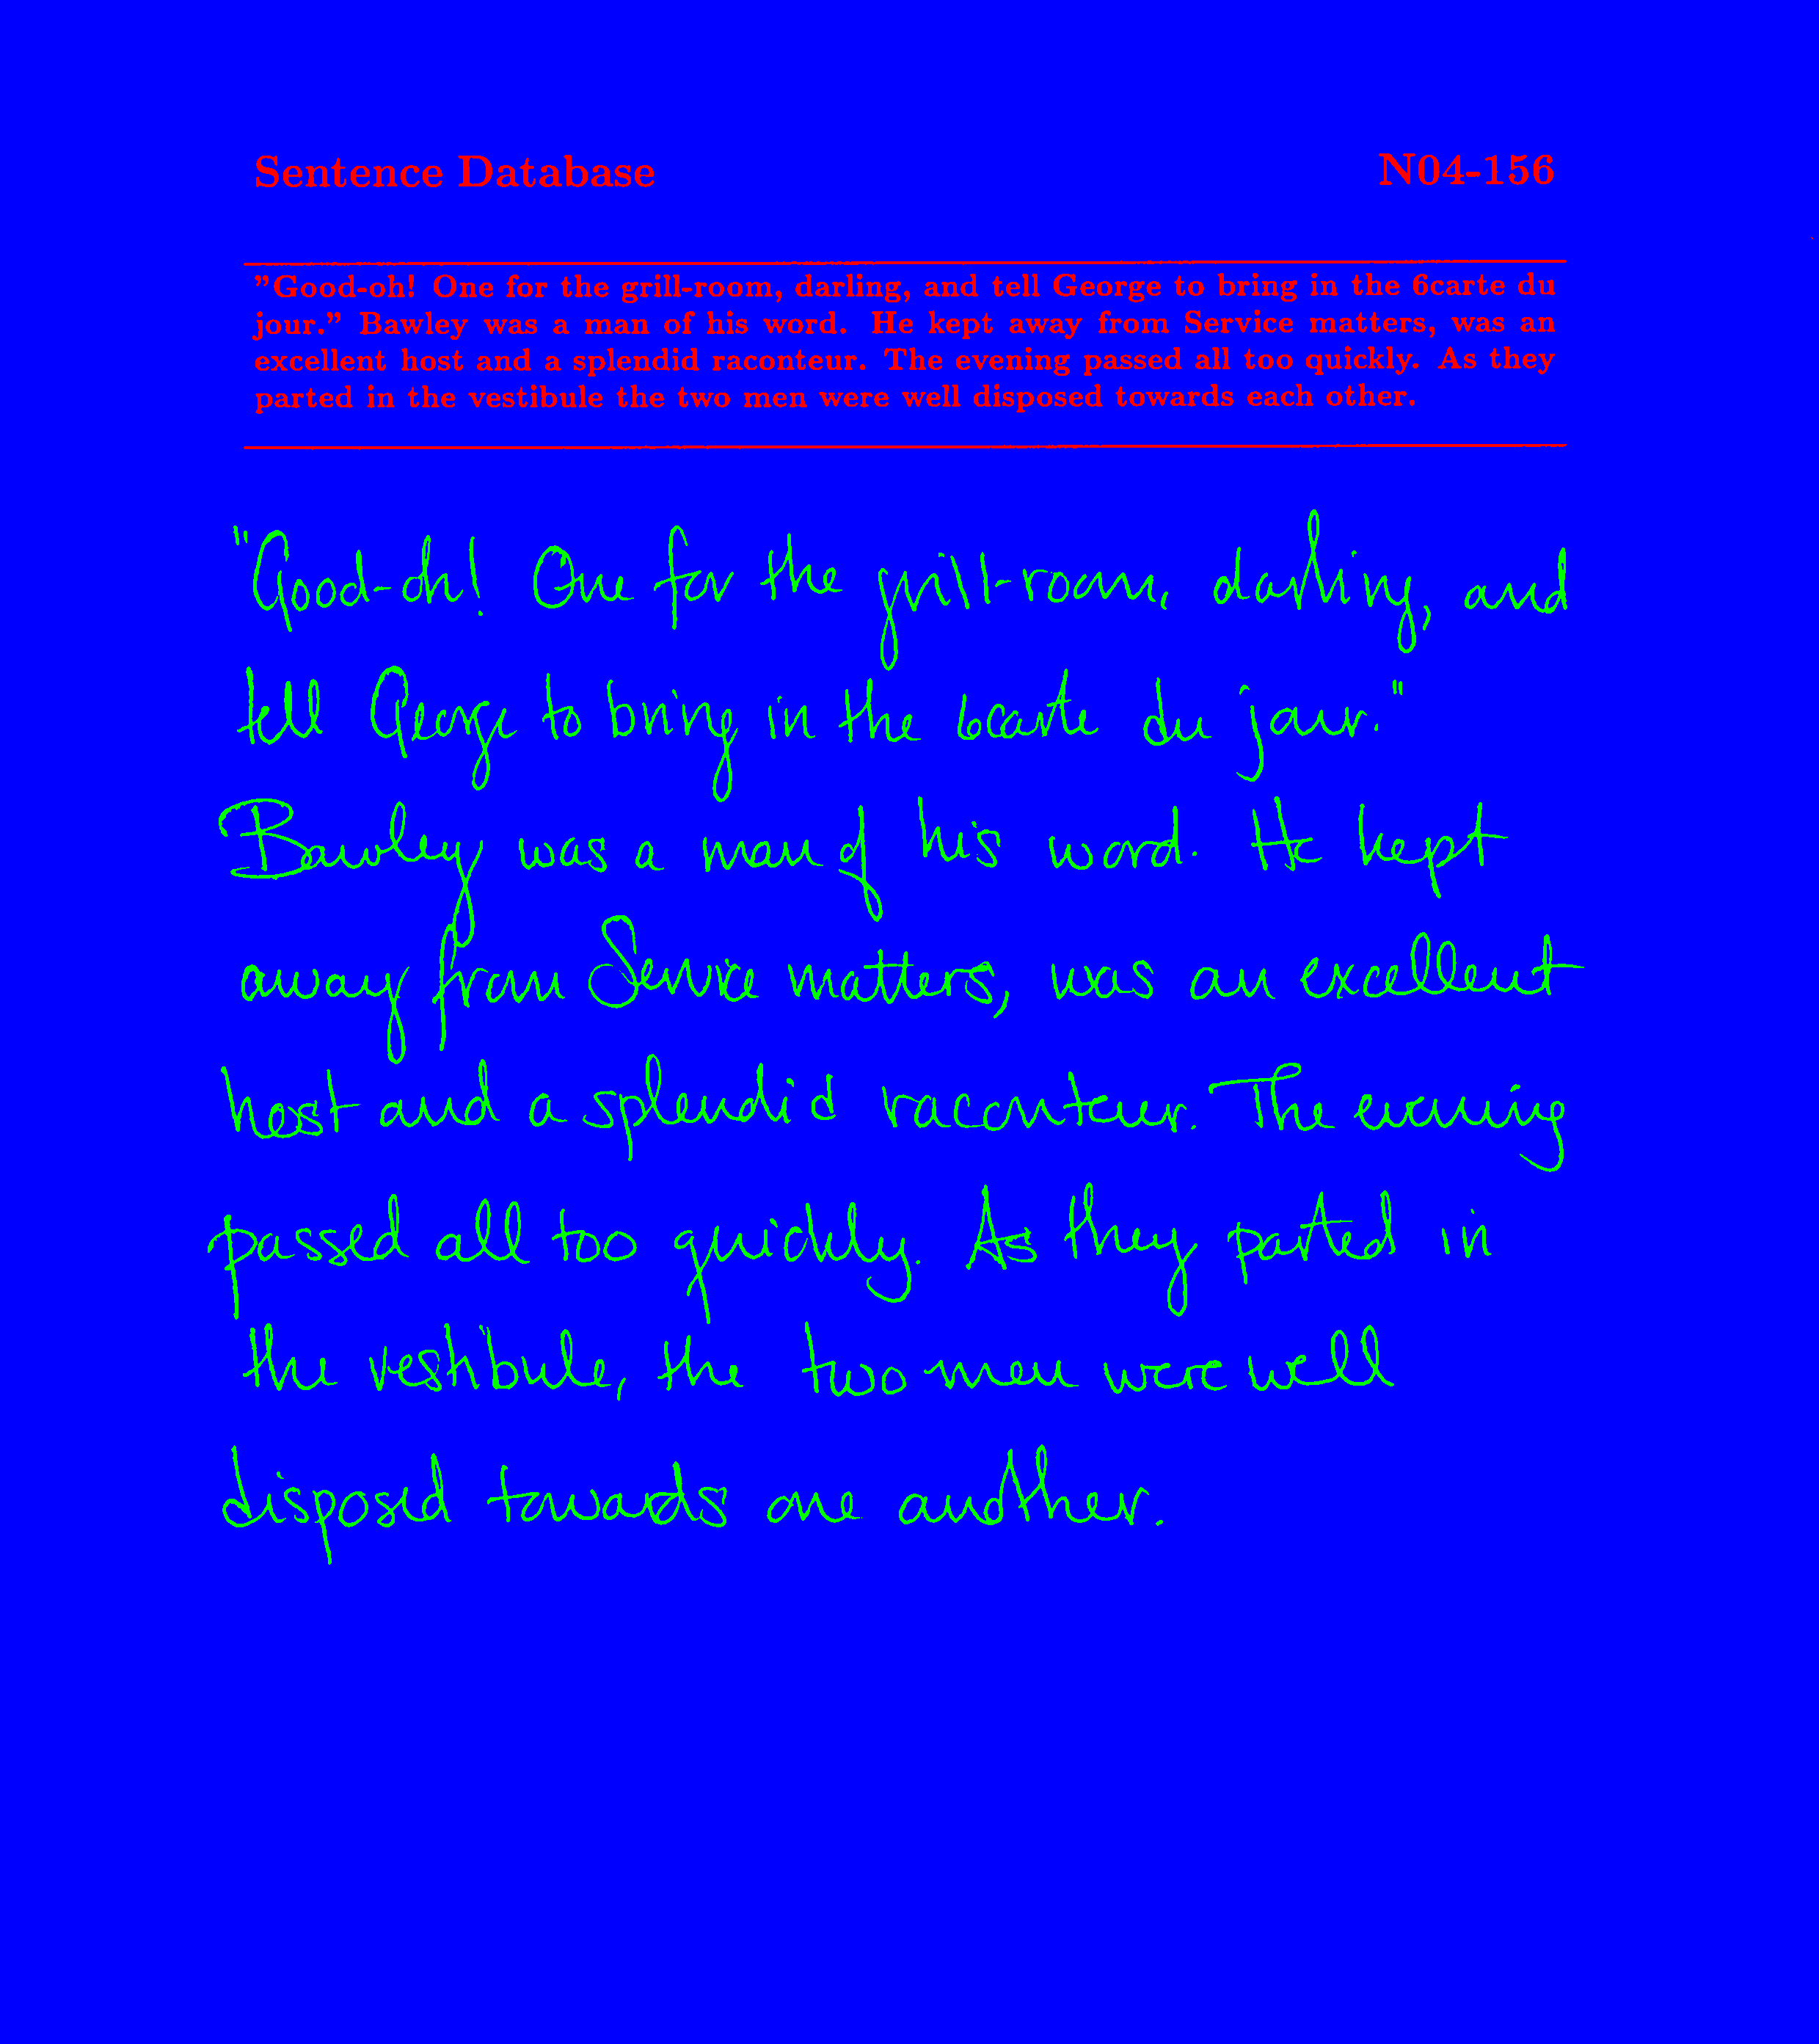 Sentence Database N04-156
"Good-oh! One for the grill-room, darling, and tell George to bring in the 6carte du
jour." Bawley was a man of his word. He kept away from Service matters, was an
excellent host and a splendid raconteur. The evening passed all too quickly. As they
parted in the vestibule the two men were well disposed towards each other.
"Good-oh! One for the grill-room, darling, and
tell George to bring in the 6carte du jour."
Bawley was a man of his word. He kept
away from Service matters, was an excellent
host and a splendid raconteur. The evening
passed all too quickly. As they parted in
the vestibule, the two men were well
disposed towards one another.